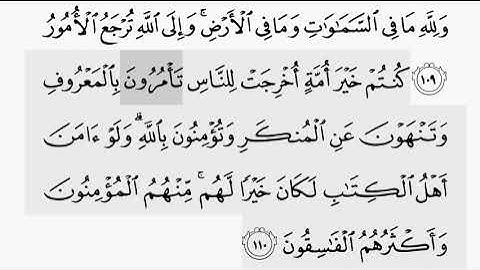 وَلِلَّهِ مَا فِي ٱلسَّمَٰوَٰتِ وَمَا فِي ٱلۡأَرۡضِۚ وَإِلَى ٱللَّهِ تُرۡجَعُ ٱلۡأُمُورُ
١٠٩ كُنتُمۡ خَيۡرَ أُمَّةٍ أُخۡرِجَتۡ لِلنَّاسِ تَأۡمُرُونَ بِٱلۡمَعۡرُوفِ
وَتَنۡهَوۡنَ عَنِ ٱلۡمُنكَرِ وَتُؤۡمِنُونَ بِٱللَّهِۗ وَلَوۡ ءَامَنَ
أَهۡلُ ٱلۡكِتَٰبِ لَكَانَ خَيۡرٗا لَّهُمۚ مِّنۡهُمُ ٱلۡمُؤۡمِنُونَ
وَأَكۡثَرُهُمُ ٱلۡفَٰسِقُونَ ١١٠